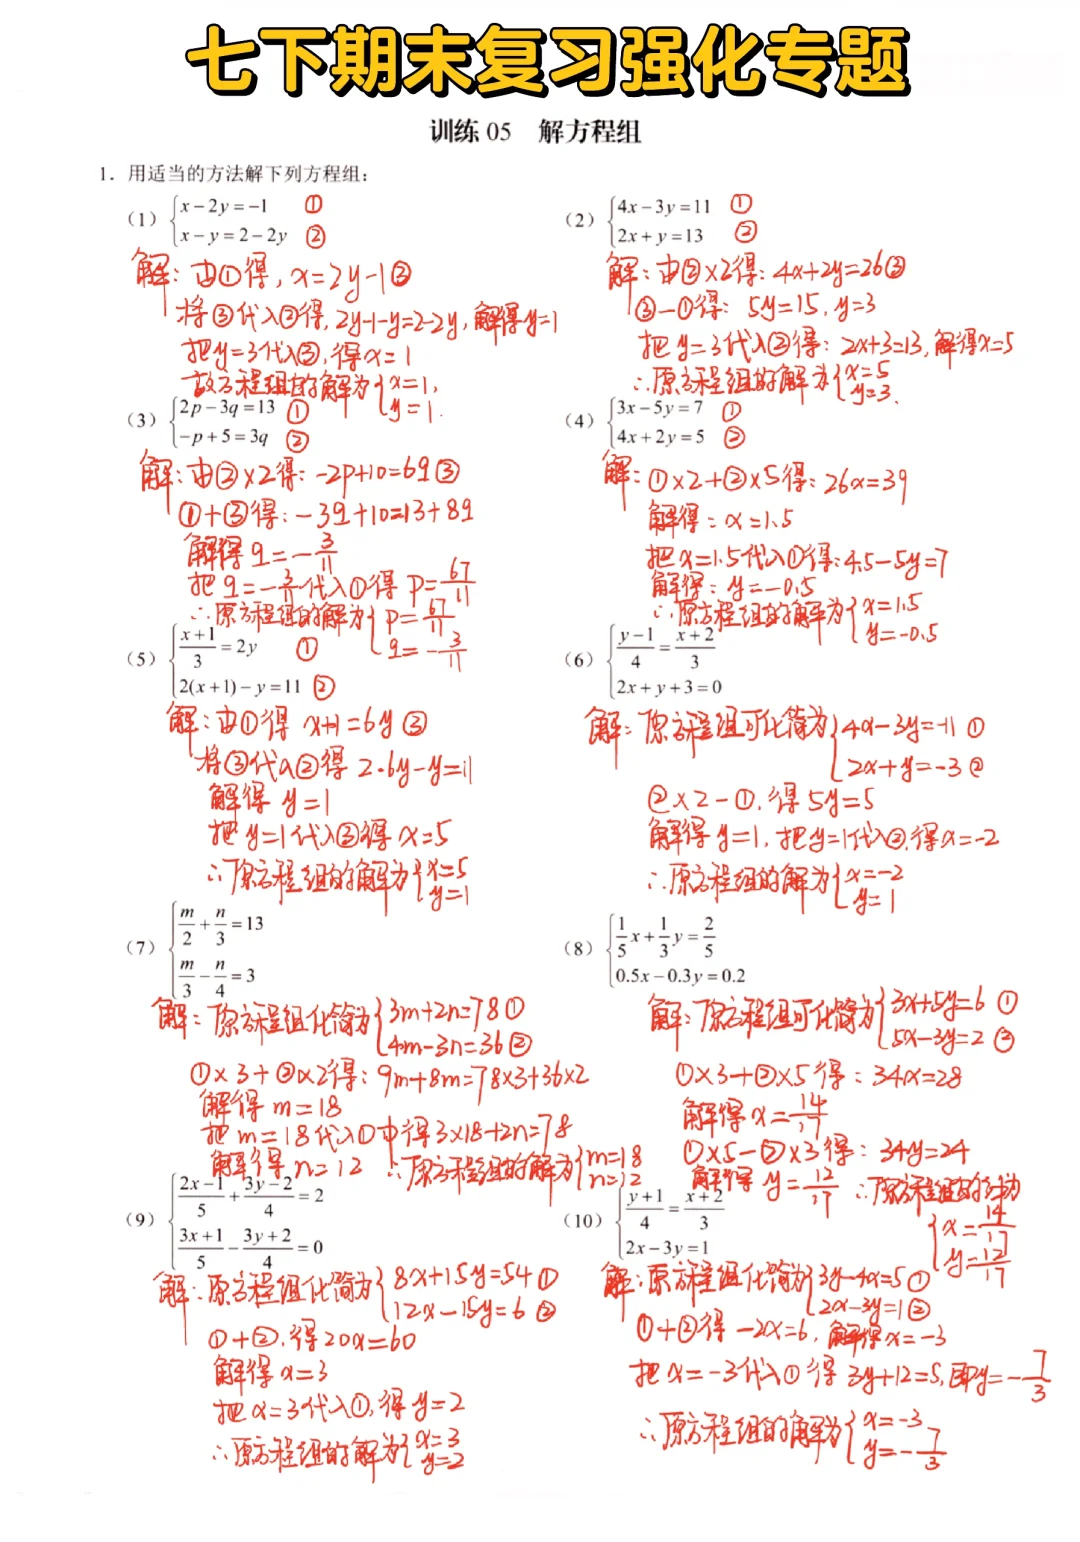 七下期末复习强化专题
训练 05 解方程组
1. 用适当的方法解下列方程组:
(1) { x-2y=-1 ①
x-y=2-2y ②
解: 由①得, x=2y-1③
将③代入②得, 2y-1-y=2-2y, 解得y=1
把y=3代入③, 得x=1
故方程组的解为{ x=1,
y=1.
(2) { 4x-3y=11 ①
2x+y=13 ②
解: 由②×2得: 4x+2y=26③
③-①得: 5y=15, y=3
把y=3代入②得: 2x+3=13, 解得x=5
∴原方程组的解为{ x=5
y=3.
(3) { 2p-3q=13 ①
-p+5=3q ②
解: 由②×2得: -2p+10=6q③
①+③得: -3q+10=13+8q
解得q=-3/11
把q=-3/11代入①得 p=67/11
∴原方程组的解为{ p=67/11
q=-3/11
(4) { 3x-5y=7 ①
4x+2y=5 ②
解: ①×2+②×5得: 26x=39
解得: x=1.5
把x=1.5代入①得: 4.5-5y=7
解得: y=-0.5
∴原方程组的解为{ x=1.5
y=-0.5
(5) { (x+1)/3=2y ①
2(x+1)-y=11 ②
解: 由①得 x+1=6y ③
将③代入②得 2·6y-y=11
解得 y=1
把 y=1代入③得 x=5
∴原方程组的解为{ x=5
y=1
(6) { (y-1)/4=(x+2)/3
2x+y+3=0
解: 原方程组可化简为{ 4x-3y=-11 ①
2x+y=-3 ②
②×2-①, 得 5y=5
解得y=1, 把y=1代入②, 得x=-2
∴原方程组的解为{ x=-2
y=1
(7) { m/2+n/3=13
m/3-n/4=3
解: 原方程组化简为{ 3m+2n=78①
4m-3n=36②
①×3+②×2得: 9m+8m=78×3+36×2
解得 m=18
把 m=18代入①中得3×18+2n=78
解得 n=12 ∴原方程组的解为{ m=18
n=12
(8) { 1/5x+1/3y=2/5
0.5x-0.3y=0.2
解: 原方程组可化简为{ 3x+5y=6 ①
5x-3y=2 ②
①×3+②×5得: 34x=28
解得x=14/17
①×5-②×3得: 34y=24
解得 y=12/17 ∴原方程组的解为
{ x=14/17
y=12/17
(9) { (2x-1)/5+(3y-2)/4=2
(3x+1)/5-(3y+2)/4=0
解: 原方程组化简为{ 8x+15y=54 ①
12x-15y=6 ②
①+②, 得20x=60
解得 x=3
把x=3代入①, 得y=2
∴原方程组的解为{ x=3
y=2
(10) { (y+1)/4=(x+2)/3
2x-3y=1
解: 原方程组化简为{ 3y-4x=5①
2x-3y=1②
①+②得 -2x=6, 解得x=-3
把x=-3代入①得 3y+12=5, 即y=-7/3
∴原方程组的解为{ x=-3
y=-7/3